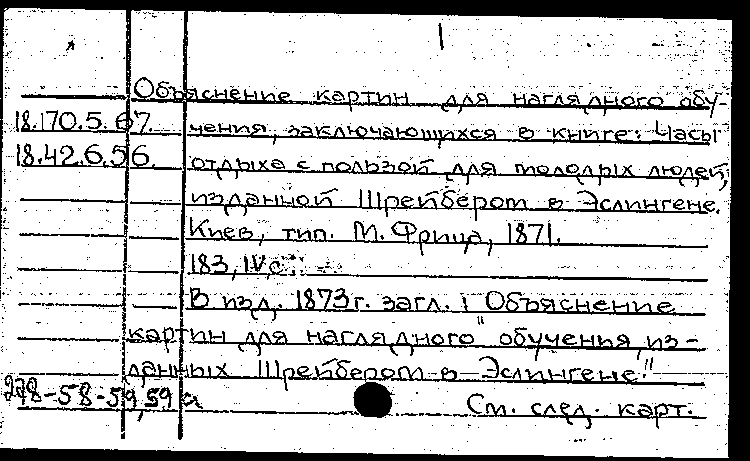 Объяснение картин для наглядного обу-
18.170.5.67 чения, заключающихся в книге: Часы
18.42.6.56 отдыха с пользой для молодых людей,
изданной Шрейбером в Эслингене.
Киев, тип. М. Фрица, 1871.
183, IV с.
В изд. 1873г. загл.: "Объяснение
картин для наглядного обучения, из-
данных Шрейбером в Эслингене."
278-58-59,59 а См. след. карт.